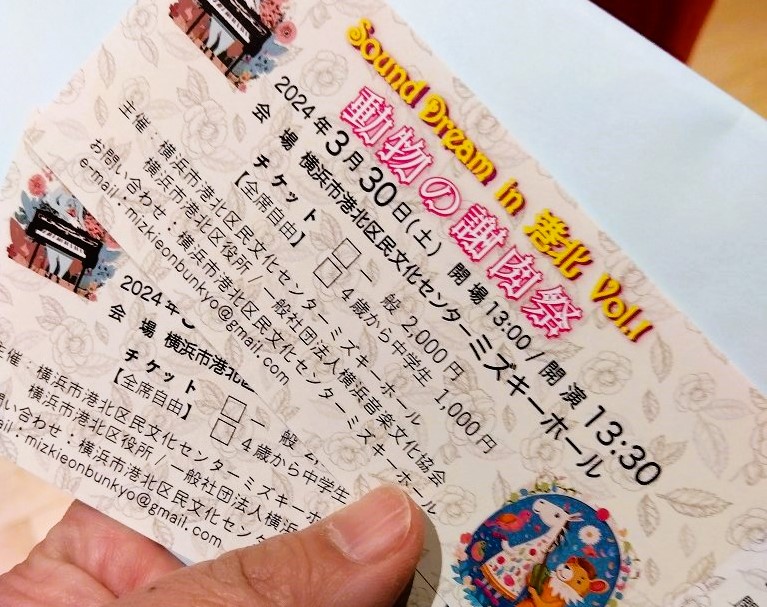 Sound Dream in 港北 Vol.1
動物の謝肉祭
2024年3月30日(土) 開場13:00/開演13:30
会 場 横浜市港北区民文化センターミズキーホール
チケット □一般 2,000円
【全席自由】 □4歳から中学生 1,000円
主催:横浜市港北区民文化センターミズキーホール
横浜市港北区役所/一般社団法人横浜音楽文化協会
お問い合わせ:横浜市港北区民文化センターミズキーホール
e-mail:mizkieonbunkyo@gmail.com
2024年3
会 場 横浜市港北区
チケット □一般
【全席自由】 □4歳から中学生
主催:横浜市港北区民文化センターミズキーホ
横浜市港北区役所/一般社団法人横浜
問い合わせ:横浜市港北区民文化センタ
mail:mizkieonbunkyo@gmail.com